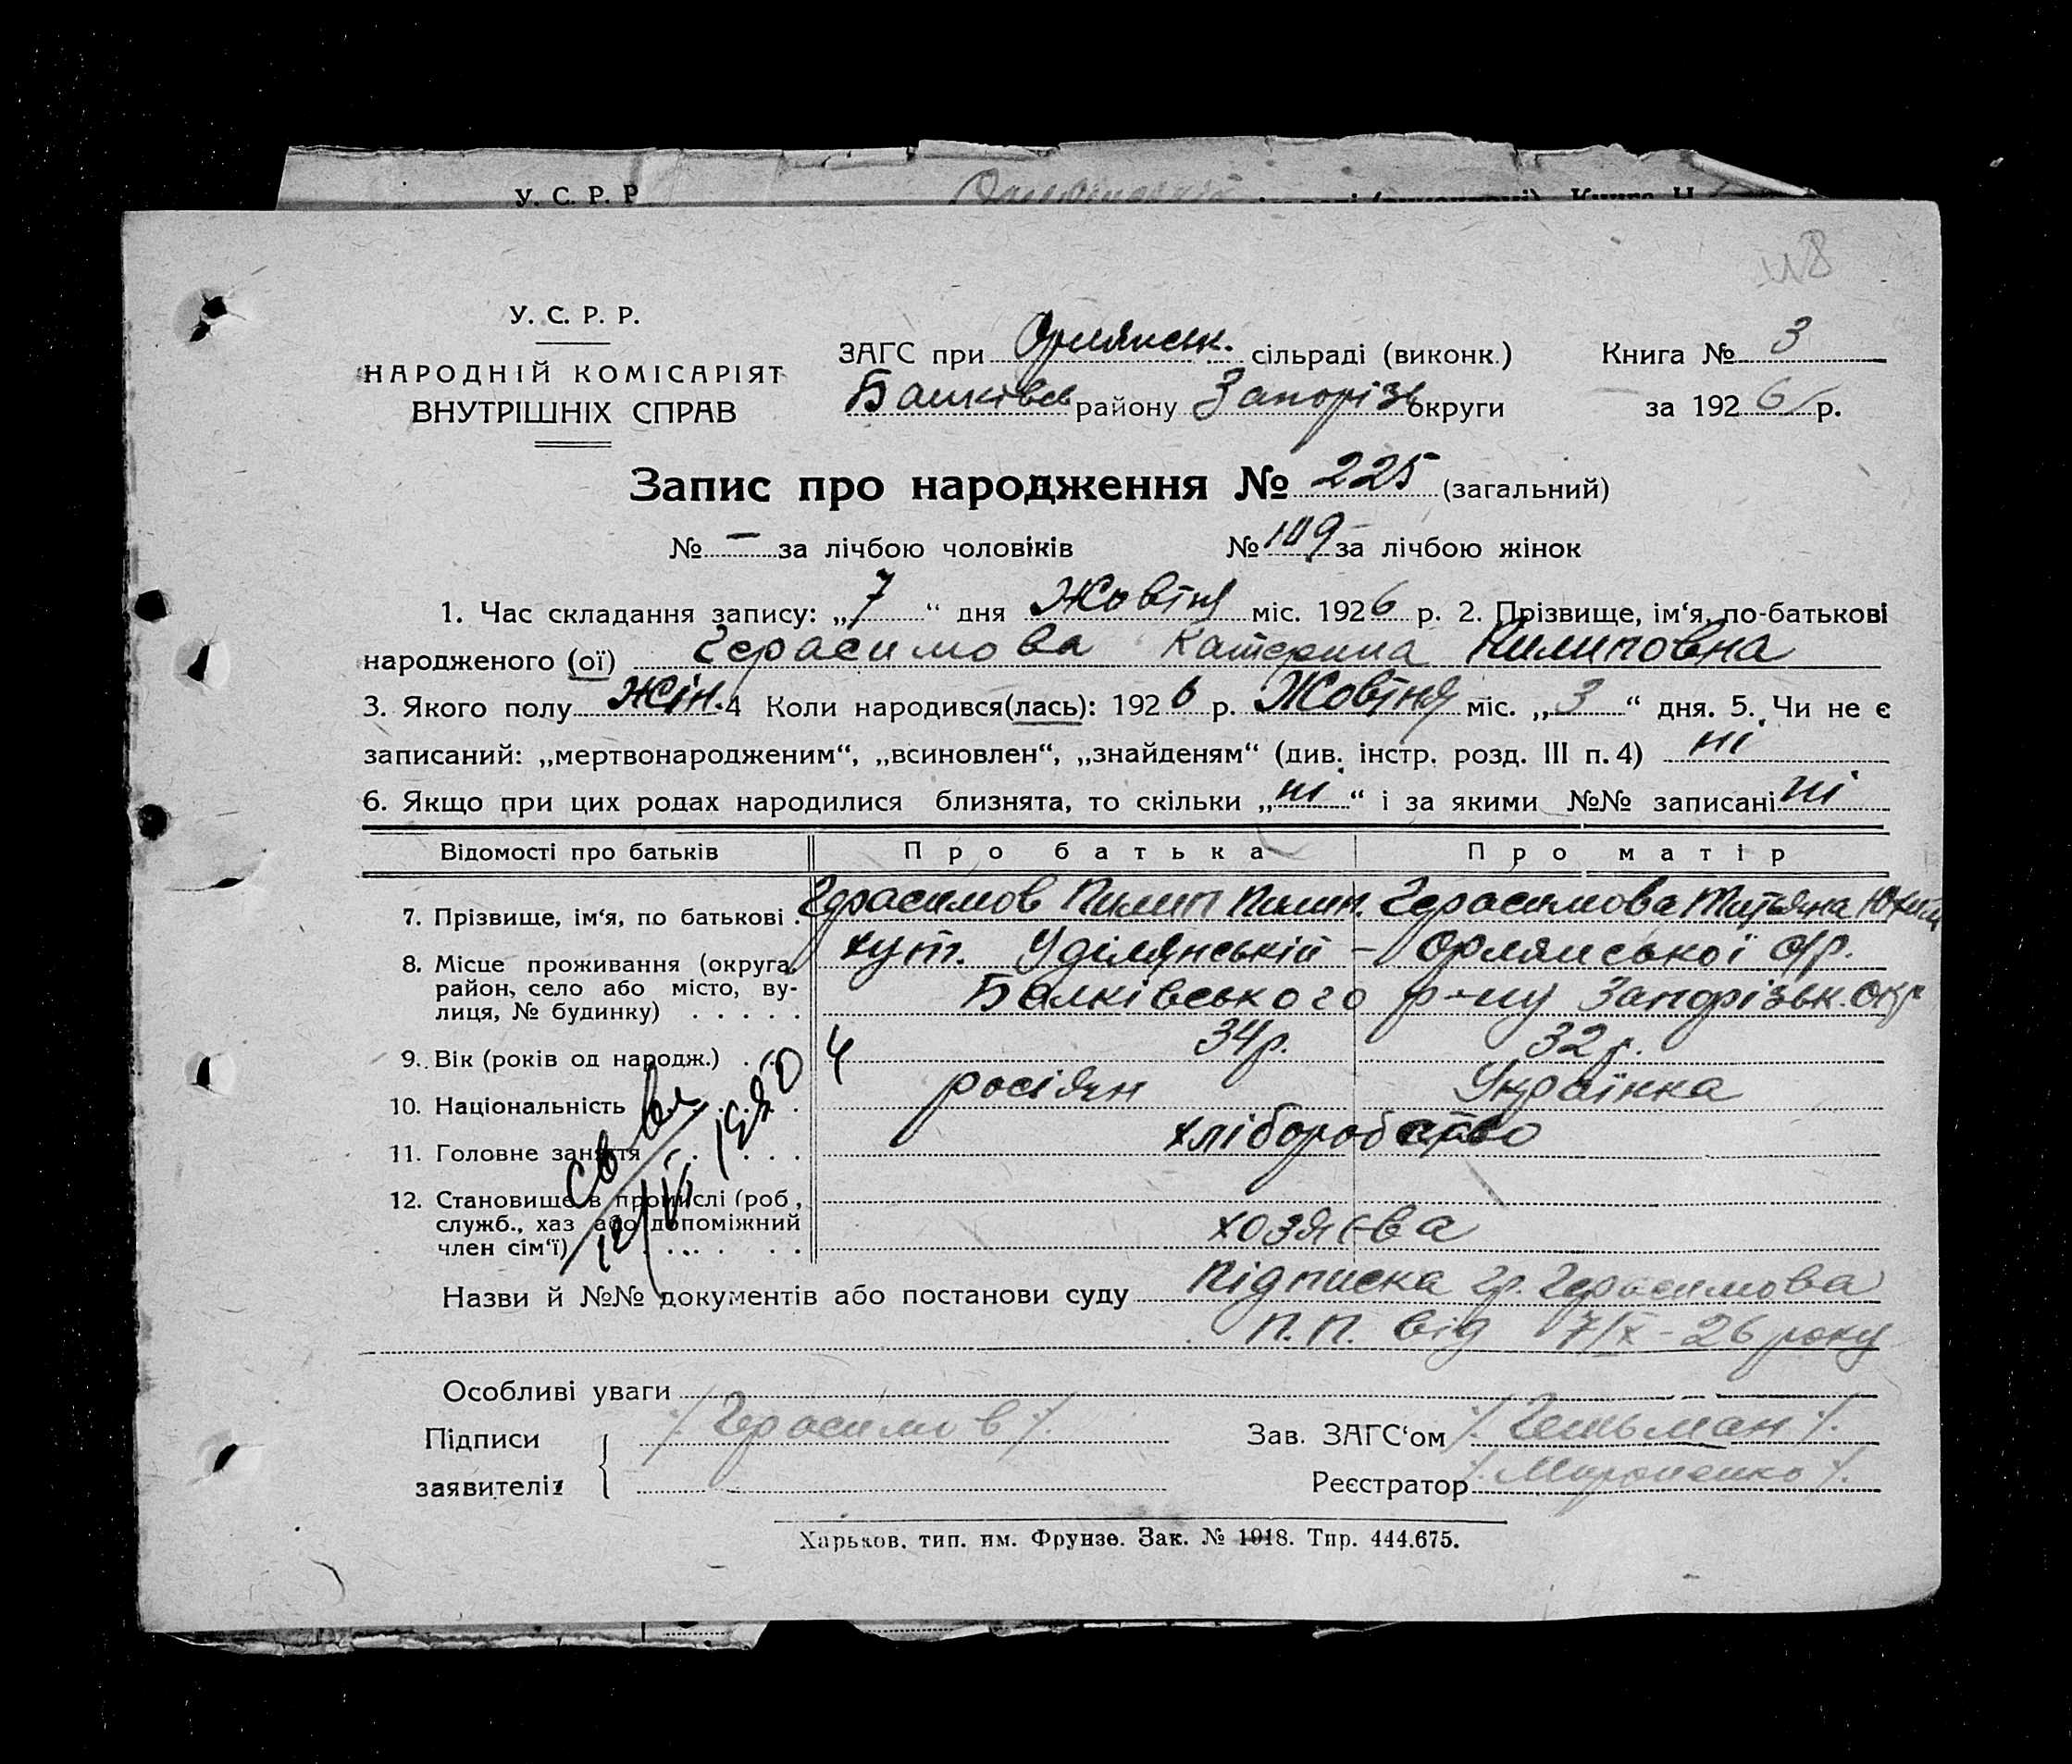 У. С. Р. Р
У. С. Р. Р.
НАРОДНІЙ КОМІСАРІЯТ
ВНУТРІШНІХ СПРАВ
ЗАГС при Орлянськ. сільраді (виконк.)
Балківсь району Запорізь округи
Книга № 3
за 1926 р.
Запис про народження № 225 (загальний)
№ — за лічбою чоловіків № 109 за лічбою жінок
1. Час складання запису: „7“ дня Жовтня міс. 1926 р. 2. Прізвище, ім‘я, по-батькові
народженого (ої) Герасимова Катерина Пилиповна
3. Якого полу Жін. 4 Коли народився(лась): 1926 р. Жовтня міс. „3“ дня. 5. Чи не є
записаний: „мертвонародженим“, „всиновлен“, „знайденям“ (див. інстр. розд. III п. 4) ні
6. Якщо при цих родах народилися близнята, то скільки „ні“ і за якими №№ записані ні
Відомості про батьків Про батька Про матір
7. Прізвище, ім‘я, по батькові . Герасимов Пилип Пилип. Герасимова Титьяна
8. Місце проживання (округа, хут. Уділянській – Орлянської с/р.
район, село або місто, ву- Балківського р-ну Запорізьк. окр
лиця, № будинку) . . . . .
9. Вік (років од народж.) . . 34р. 32р.
10. Національність росіян Українка
11. Головне заняття хліборобство
12. Становище в промислі (роб.,
служб., хаз або допоміжний хозяєва
член сім‘ї)
Назви й №№ документів або постанови суду Підписка гр. Герасимова
П.П. від 7/X – 26 року
Особливі уваги
Підписи /. Герасимов /. Зав. ЗАГС‘ом /. Гетьман /.
заявителів Реєстратор /. Мироненко /.
Харьков. тип. им. Фрунзе. Зак. № 1918. Тир. 444.675.